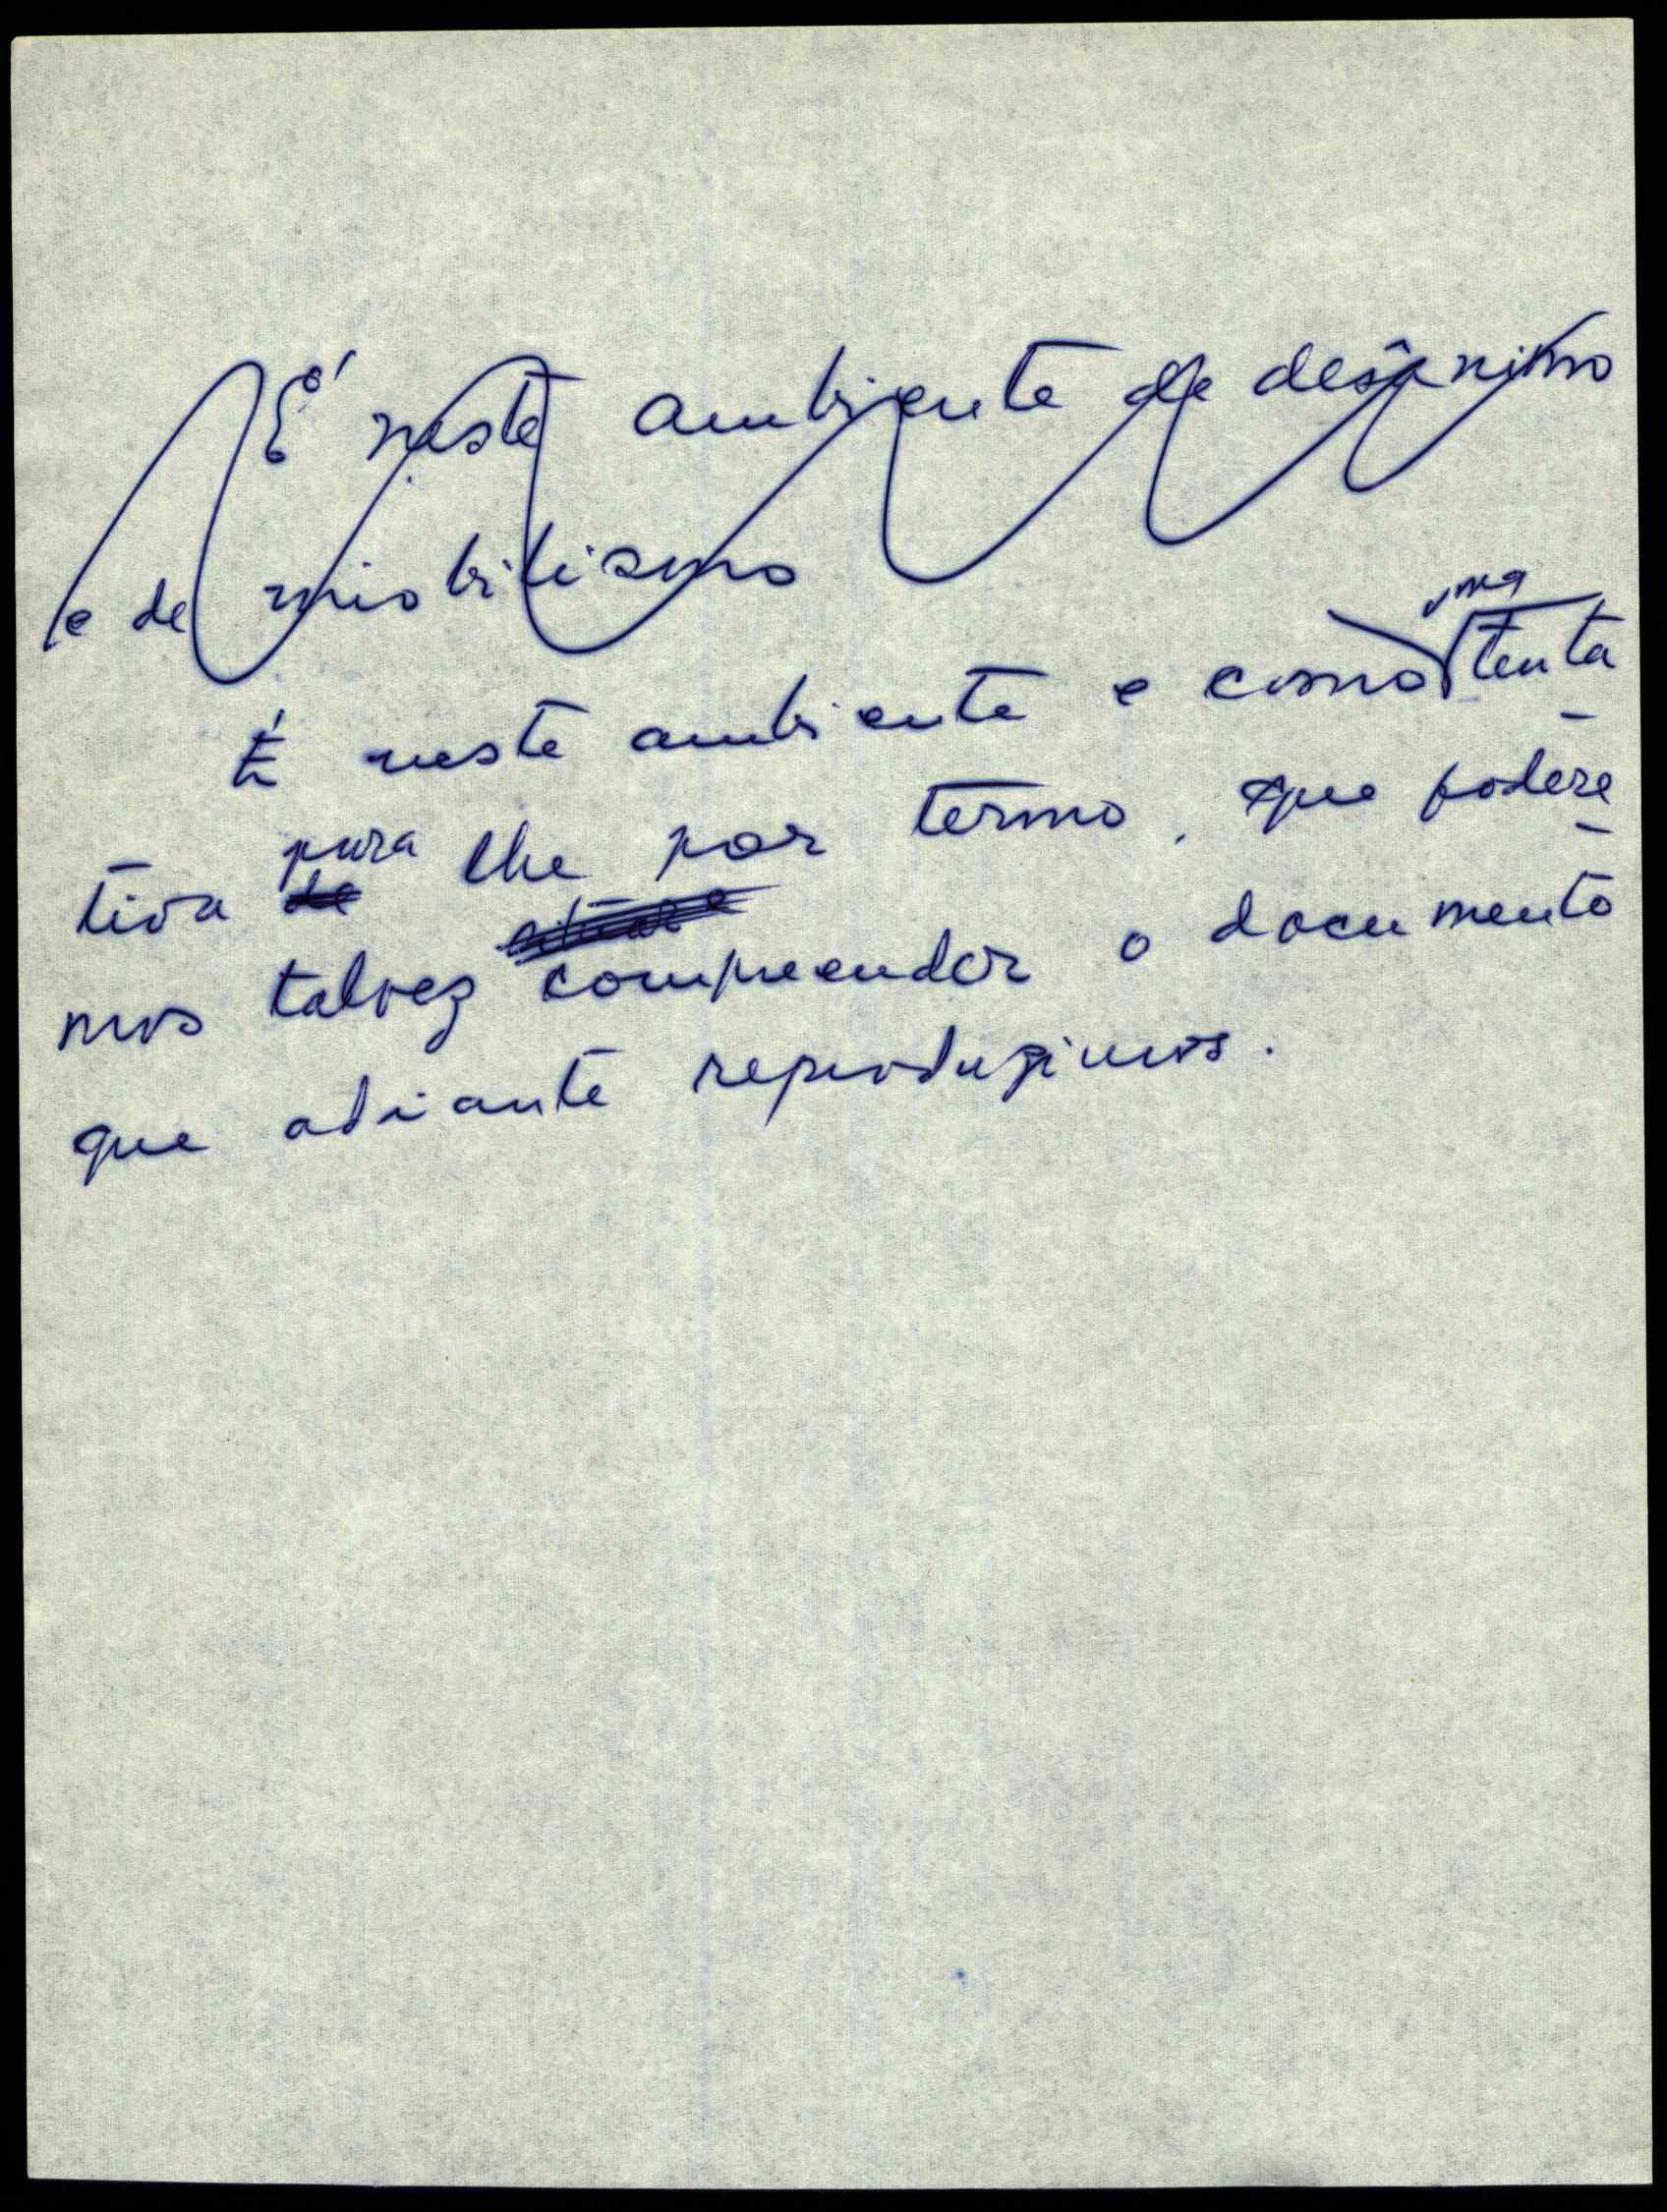 É neste ambiente de desânimo
e de miobilismo
uma
É neste ambiente e como tenta
para
tiva de lhe por termo, que podere-
mos talvez compreender o documento
que adiante reproduzimos.